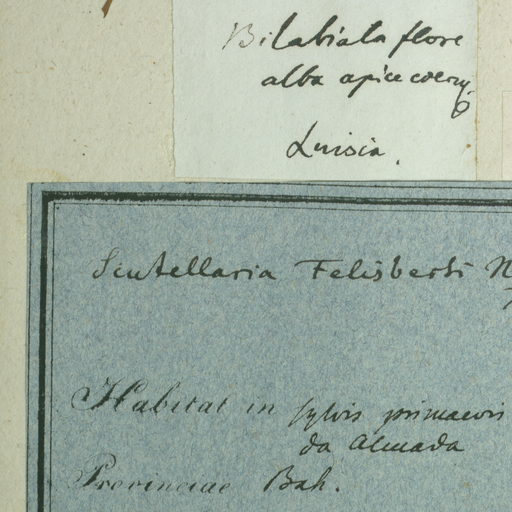 Bilabiata flore
alba apice coeru
Luisia.
Scutellaria Felisberti N
Habitat in sylvis primaevis
da Almada
Provinciae Bah.